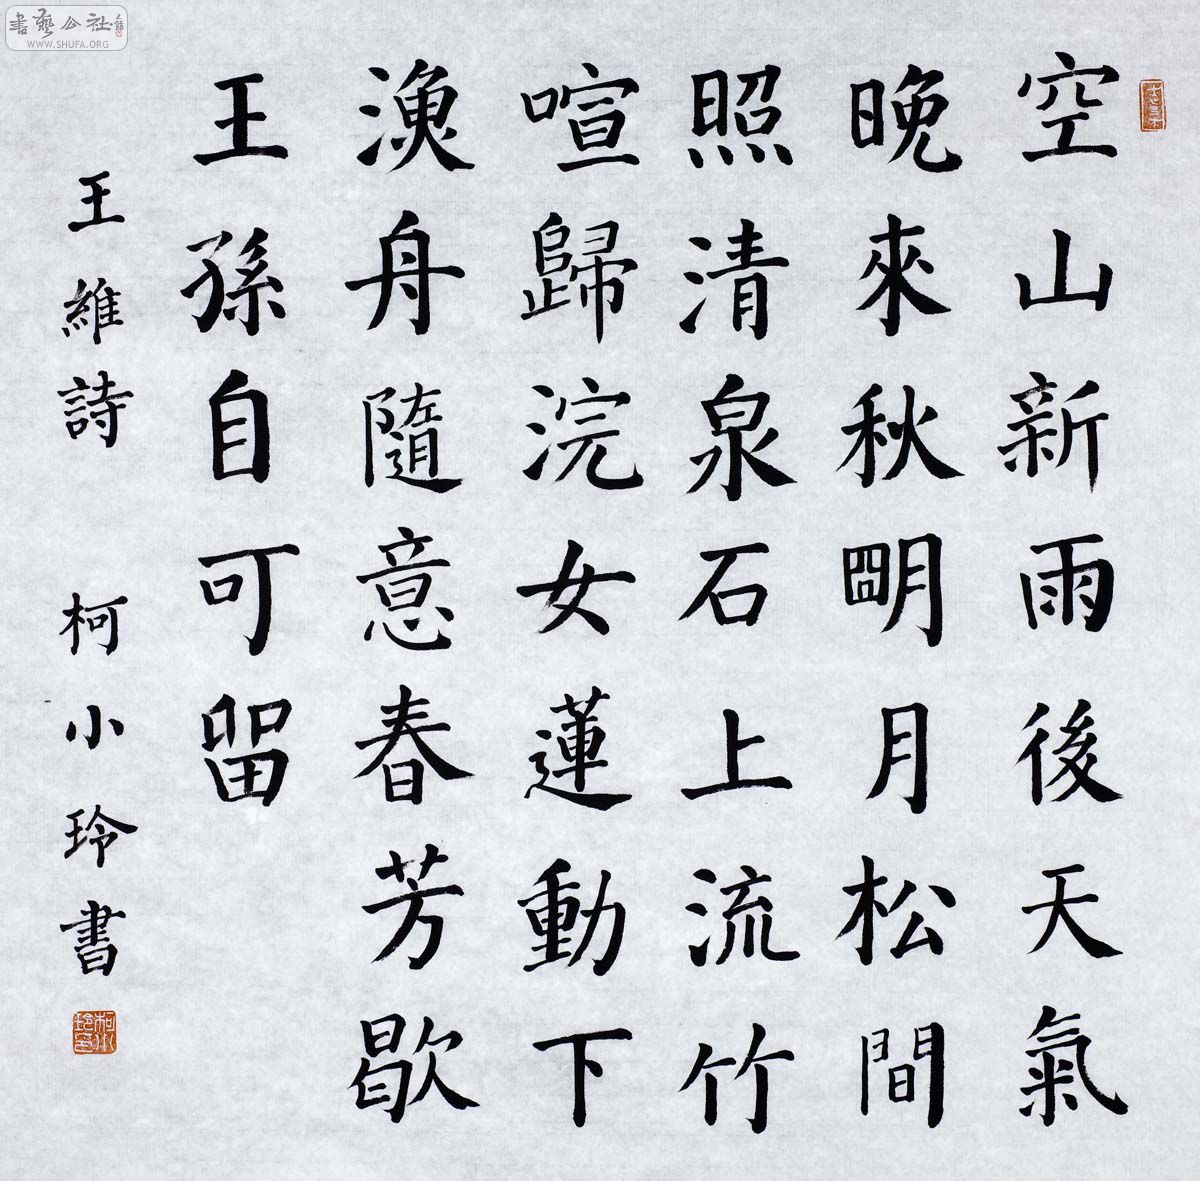 空山新雨後天氣
晚來秋朙月松間
照清泉石上流竹
喧歸浣女蓮動下
漁舟隨意春芳歇
王孫自可留
王維詩 柯小玲書
書藝公社
WWW.SHUFA.ORG